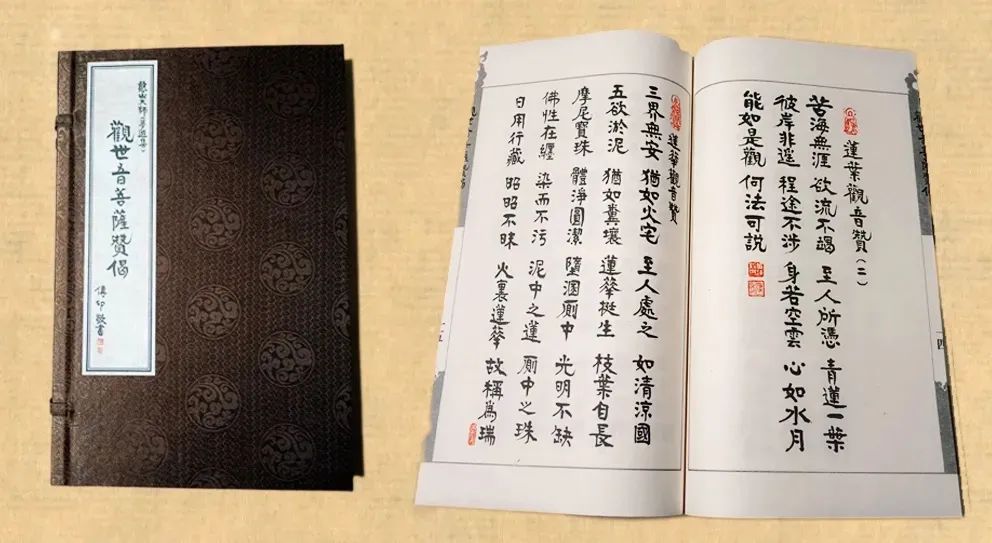 憨山大師(夢遊集)
觀世音菩薩贊偈
傳印敬書
蓮葉觀音贊(二)
苦海無涯 欲流不竭 至人所憑 青蓮一葉
彼岸非遥 程途不涉 身若空雲 心如水月
能如是觀 何法可説
一四
蓮華觀音贊
三界無安 猶如火宅 至人處之 如清涼國
五欲淤泥 猶如糞壤 蓮華挺生 枝葉自長
摩尼寶珠 體淨圓潔 墮溷廁中 光明不缺
佛性在纏 染而不污 泥中之蓮 廁中之珠
日用行藏 昭昭不昧 火裏蓮華 故稱爲瑞
一五